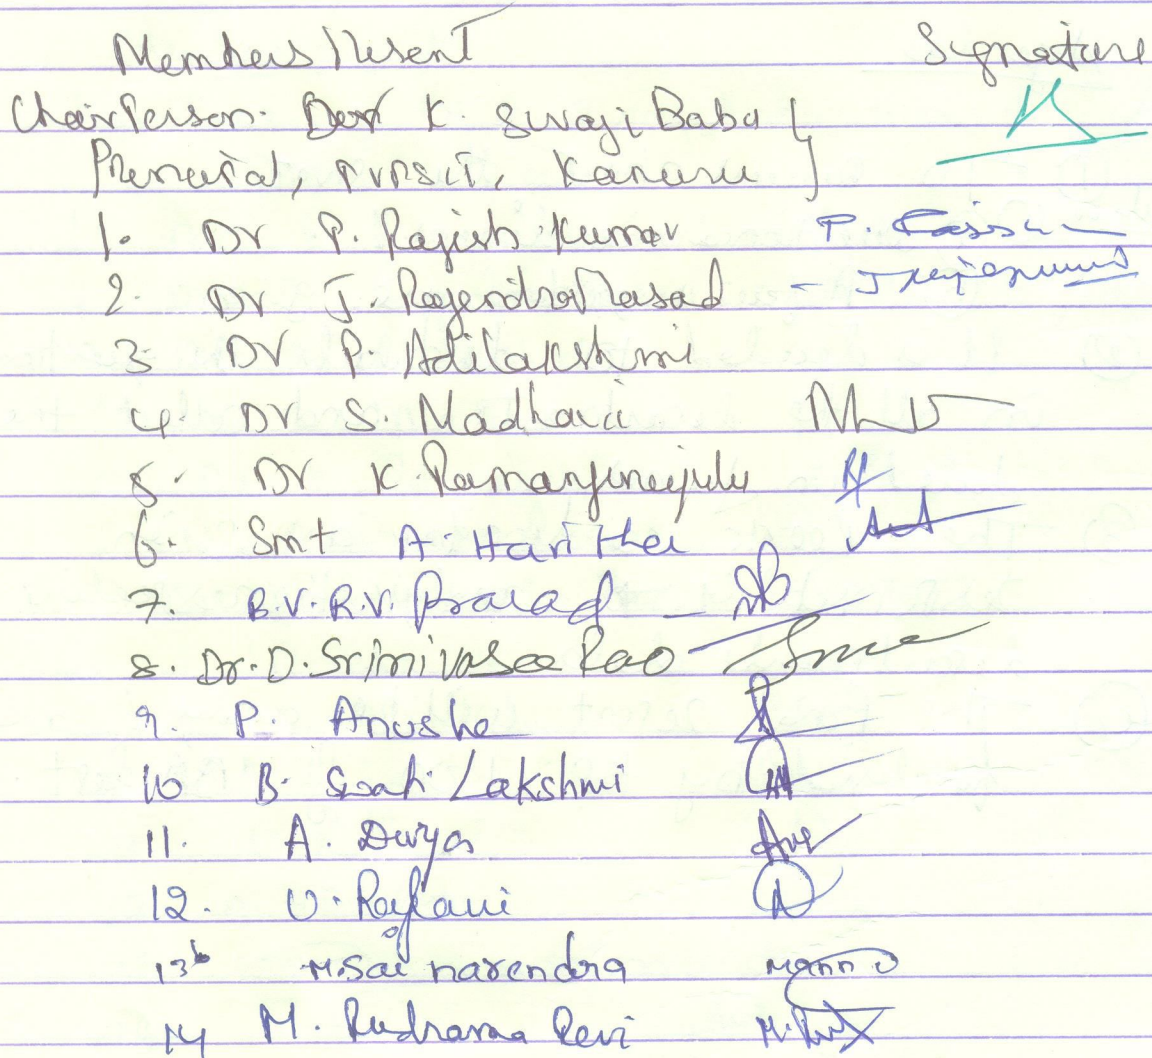 Members Present Signature
Chair Person. Dr K. Sivaji Babu
Principal, PVPSIT, Kanuru
1. Dr P. Rajesh Kumar P.
2. Dr J. Rajendra Prasad - J
3 Dr P. Adilakshmi
4. Dr S. Madhavi
5. Dr K. Ramanjineyulu
6. Smt A. Haritha
7. B.V.R.V. Prasad
8. Dr. D. Srinivasa Rao
9. P. Anusha
10 B. Swati Lakshmi
11. A. Divya
12. U. Rajani
13 M. Sai narendra
14 M. Rudrama Devi